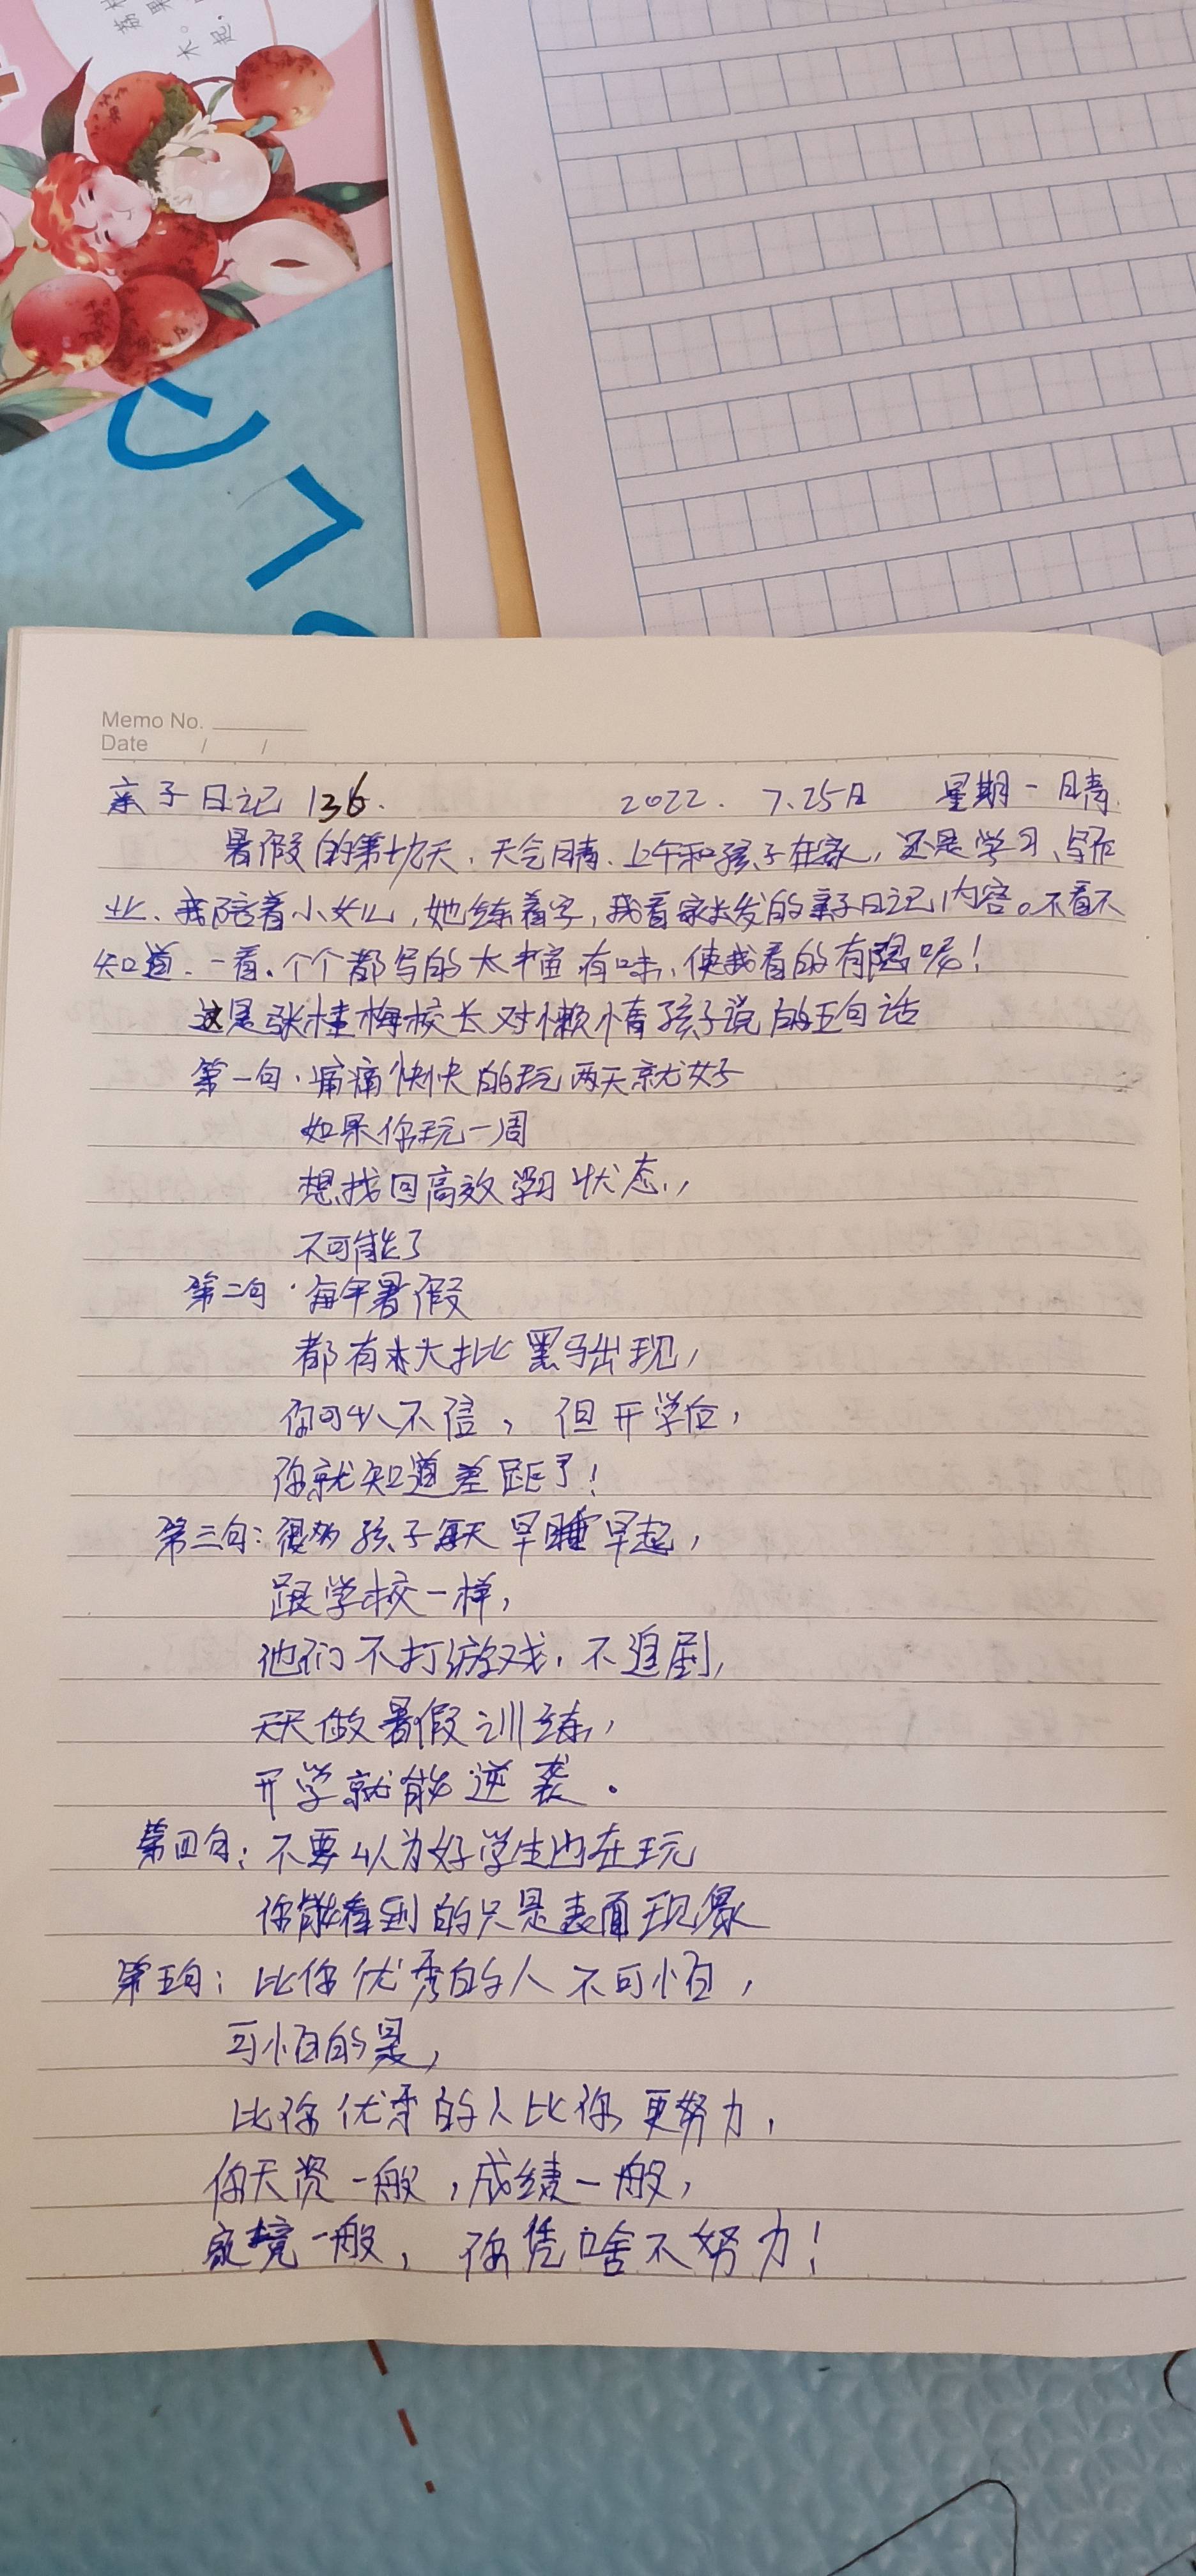 Memo No.
Date / /
亲子日记 136. 2022. 7.25日 星期一 晴.
暑假的第九天, 天气晴. 上午和孩子在家, 还是学习、写作
业、我陪着小女儿, 她练着字, 我看家长发的亲子日记内容。不看不
知道. 一看. 个个都写的太丰富有味, 使我看的有隐呢!
这是张桂梅校长对懒惰孩子说的五句话
第一句. 痛痛快快的玩两天就好
如果你玩一周
想找回高效学习状态,
不可能了
第二句. 每年暑假
都有大批黑马出现,
你可以不信, 但开学后,
你就知道差距了!
第三句: 很多孩子每天早睡早起,
跟学校一样,
他们不打游戏, 不追剧,
天天做暑假训练,
开学就能逆袭.
第四句: 不要以为好学生也在玩
你能看到的只是表面现象
第五句: 比你优秀的人不可怕,
可怕的是,
比你优秀的人比你更努力,
你天资一般, 成绩一般,
家境一般, 你凭啥不努力!